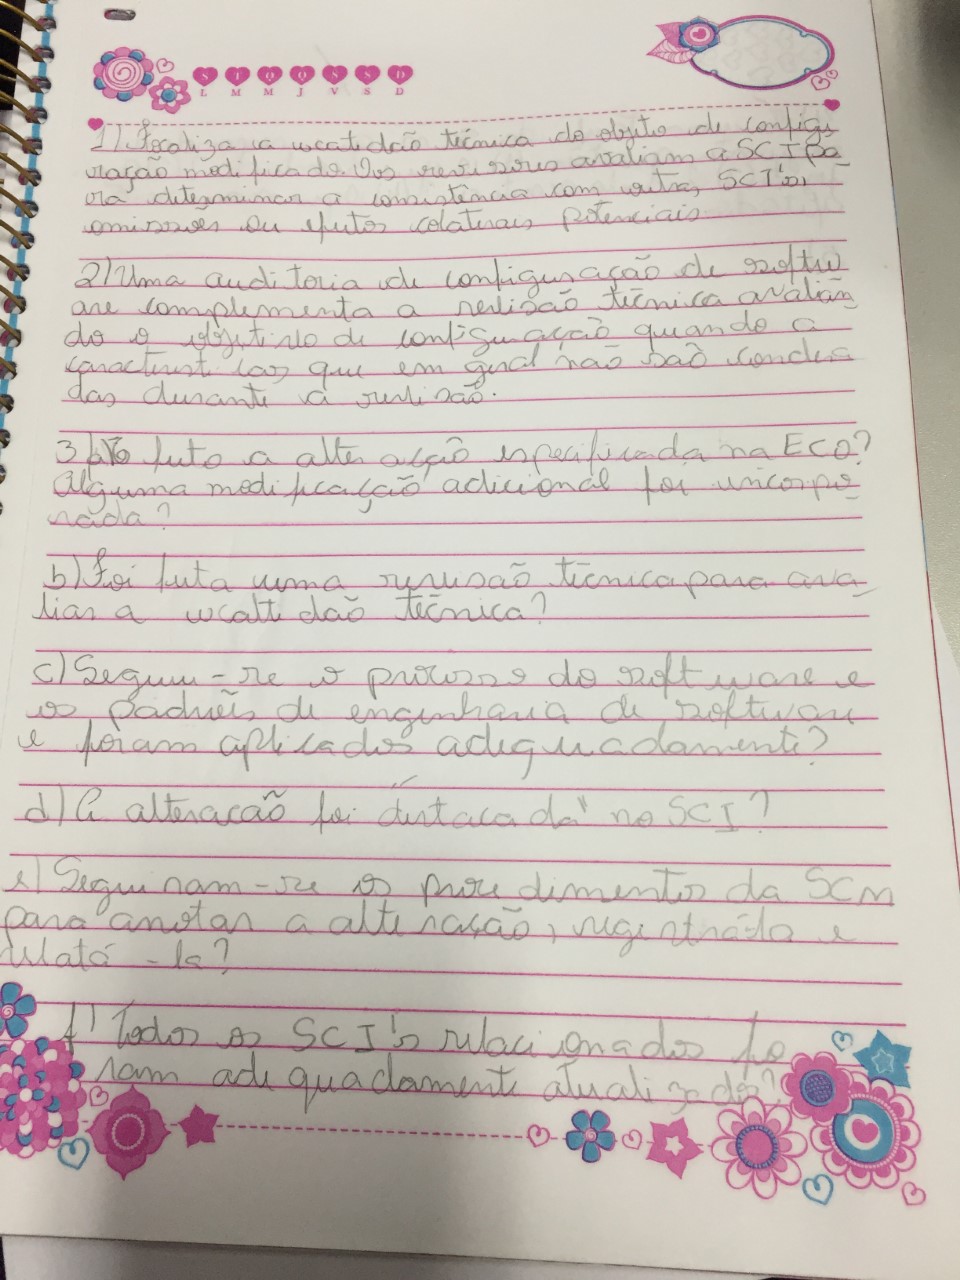 S T Q Q S S D
L M M J V S D
1) Focaliza a exatidão técnica do objeto de config
uração modificado. Os revisores avaliam a SCI pa
ra determinar a consistência com outras SCI's,
omissões ou efeitos colaterais potenciais.
2) Uma auditoria de configuração de softw
are complementa a revisão técnica avalian
do o objetivo de configuração quando a
caracteristicas que em geral não são
das durante a revisão.
3) feito a alteração especificada na ECO?
Alguma modificação adicional foi incorpo
rada?
b) Foi feita uma revisão técnica para ava
liar a exatidão técnica?
c) Seguiu-se o processo do software e
os padrões de engenharia de software
e foram aplicados adequadamente?
d) A alteração foi destacada no SCI?
e) Seguiram-se os procedimentos da SCM
para anotar a alteração, registrá-la e
relatá-la?
f) Todos os SCI's relacionados fo
ram adequadamente atualizados?